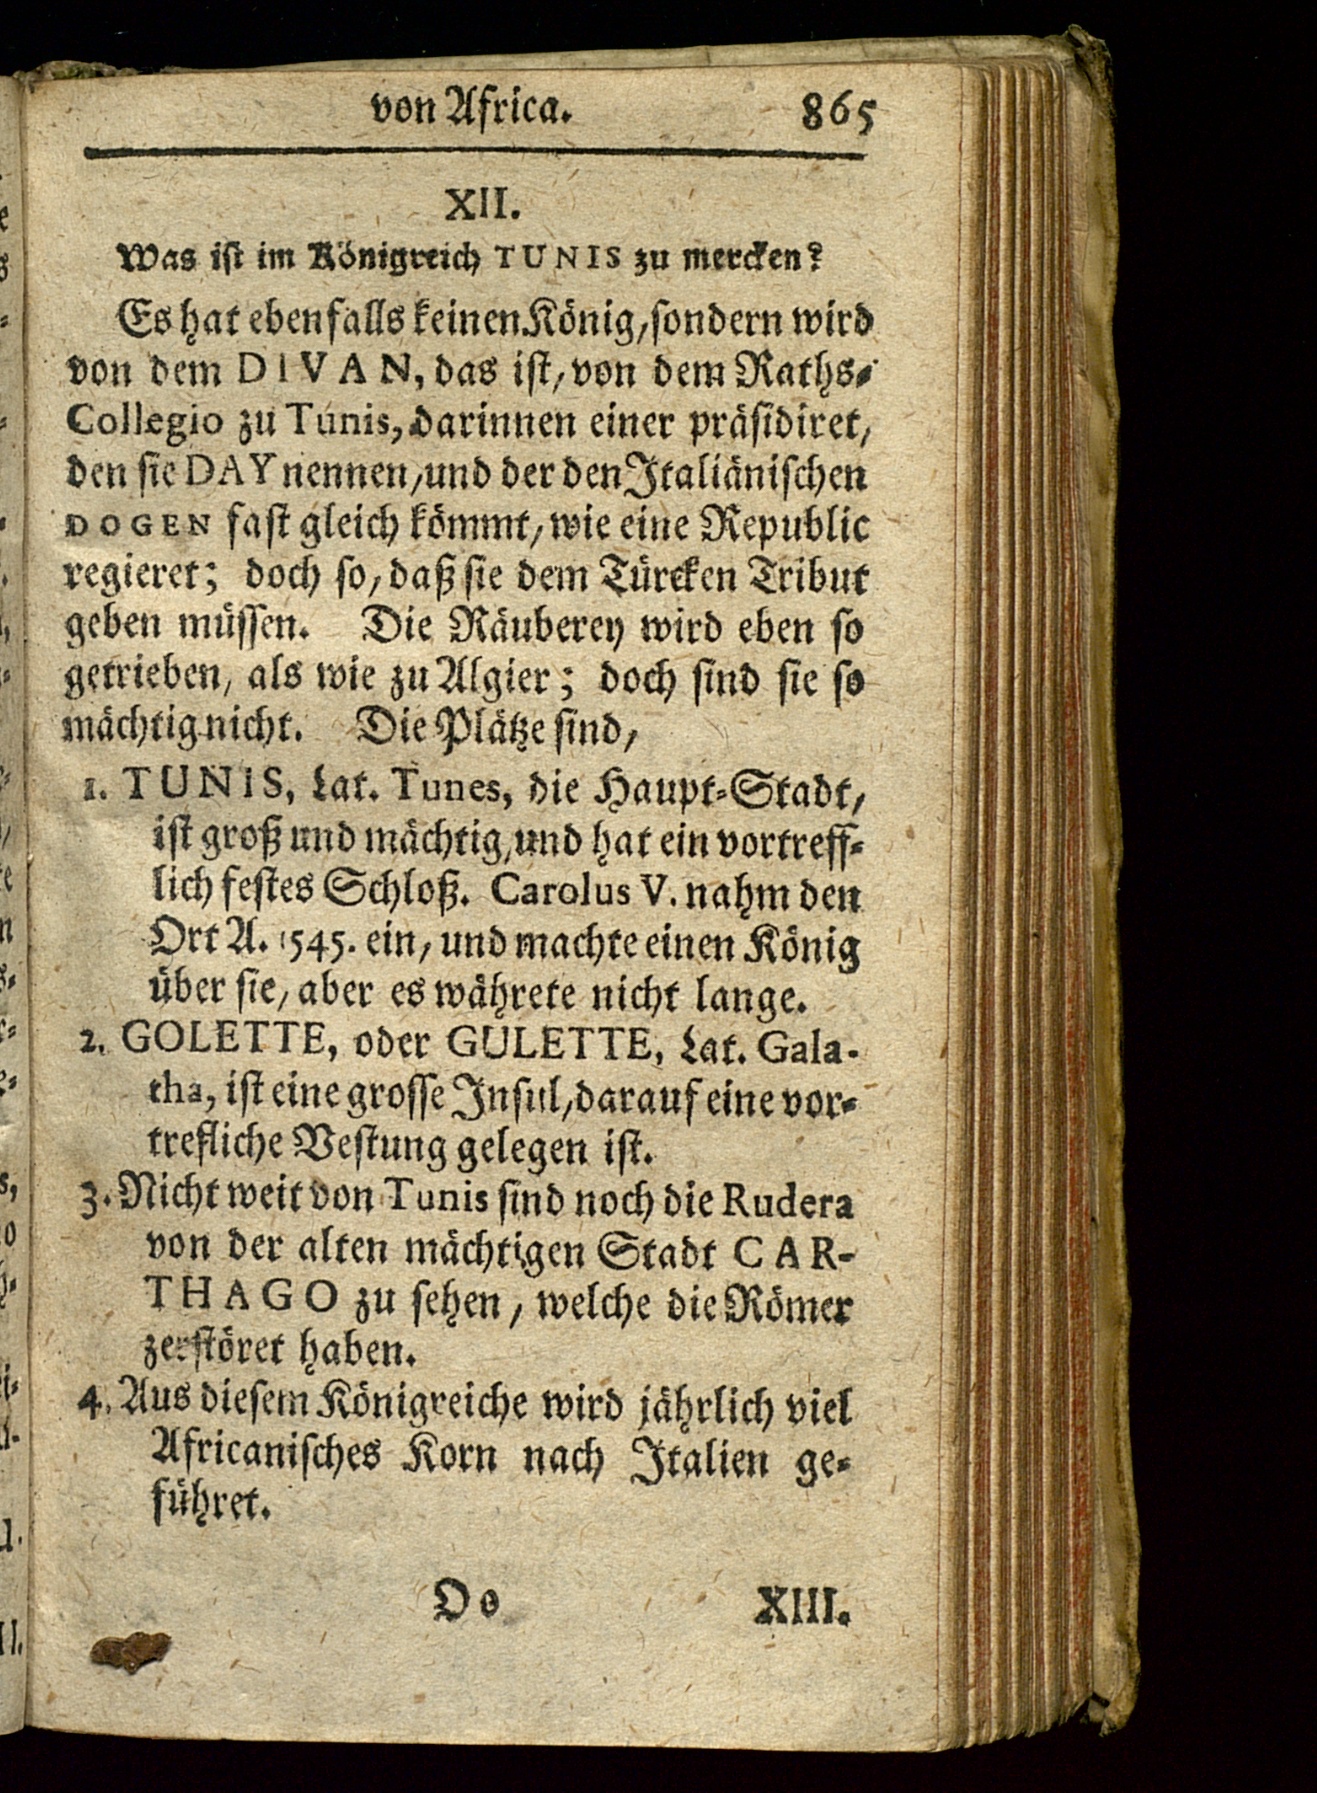 von Africa. 865
XII.
Was ist im Königreich TUNIS zu mercken?
Es hat ebenfalls keinen König, sondern wird
von dem DIVAN, das ist, von dem Raths-
Collegio zu Tunis, darinnen einer präsidiret,
den sie DAY nennen, und der den Italiänischen
DOGEN fast gleich kömmt, wie eine Republic
regieret; doch so, daß sie dem Türcken Tribut
geben müssen. Die Räuberey wird eben so
getrieben, als wie zu Algier; doch sind sie so
mächtig nicht. Die Plätze sind,
1. TUNIS, Lat. Tunes, die Haupt-Stadt,
ist groß und mächtig, und hat ein vortreff-
lich festes Schloß. Carolus V. nahm den
Ort A. 1545. ein, und machte einen König
über sie, aber es währete nicht lange.
2. GOLETTE, oder GULETTE, Lat. Gala-
tha, ist eine grosse Insul, darauf eine vor-
trefliche Vestung gelegen ist.
3. Nicht weit von Tunis sind noch die Rudera
von der alten mächtigen Stadt CAR-
THAGO zu sehen, welche die Römer
zerstöret haben.
4. Aus diesem Königreiche wird jährlich viel
Africanisches Korn nach Italien ge-
führet.
Oo XIII.